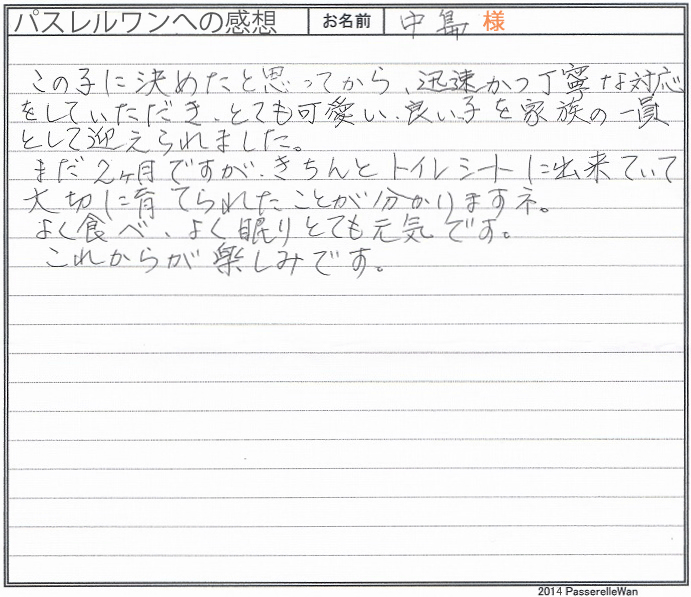 パスレルワンへの感想 お名前 中島 様
この子に決めたと思ってから、迅速かつ丁寧な対応
をしていただき、とても可愛い、良い子を家族の一員
として迎えられました。
まだ2ヶ月ですが、きちんとトイレシートに出来ていて
大切に育てられたことが分かりますネ。
よく食べ、よく眠りとても元気です。
これからが楽しみです。
2014 PasserelleWan